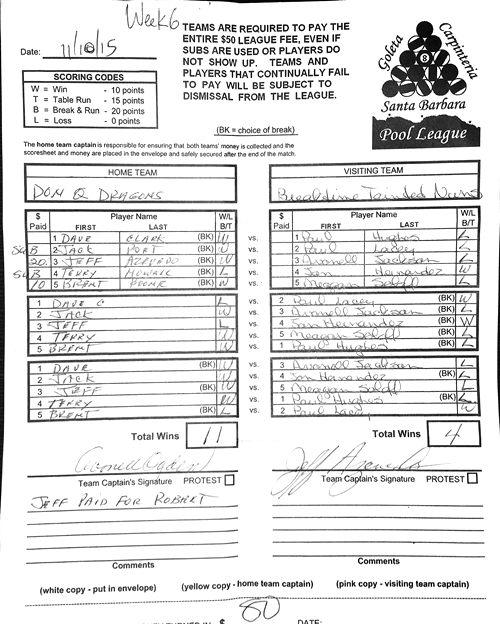 Week 6
Date: 11/10/15
TEAMS ARE REQUIRED TO PAY THE
ENTIRE $50 LEAGUE FEE, EVEN IF
SUBS ARE USED OR PLAYERS DO
NOT SHOW UP. TEAMS AND
PLAYERS THAT CONTINUALLY FAIL
TO PAY WILL BE SUBJECT TO
DISMISSAL FROM THE LEAGUE.
(BK = choice of break)
Goleta Carpinteria
8
Santa Barbara
Pool League
SCORING CODES
W = Win - 10 points
T = Table Run - 15 points
B = Break & Run - 20 points
L = Loss - 0 points
The home team captain is responsible for ensuring that both teams' money is collected and the
scoresheet and money are placed in the envelope and safely secured after the end of the match.
HOME TEAM VISITING TEAM
DON Q DRAGONS Breaktime Tainted Nuns
$ Paid Player Name FIRST LAST W/L B/T $ Paid Player Name FIRST LAST W/L B/T
1 DAVE CLARK (BK) W vs. 1 Paul Hughes L
SUB 2 JACK PORT (BK) W vs. 2 Paul Lacey L
20 3 JEFF AZEVEDO (BK) W vs. 3 Jackson L
SUB 4 TERRY (BK) L vs. 4 Hernandez W
10 5 BRENT (BK) W vs. 5 Meagan L
1 DAVE C L vs. 2 Paul Lacey (BK) W
2 JACK W vs. 3 Jackson (BK) L
3 JEFF L vs. 4 Hernandez (BK) W
4 TERRY W vs. 5 Meagan (BK) L
5 BRENT W vs. 1 Paul Hughes (BK) L
1 DAVE (BK) W vs. 3 Jackson L
2 JACK (BK) W vs. 4 Hernandez L
3 JEFF (BK) W vs. 5 Meagan L
4 TERRY (BK) W vs. 1 Paul Hughes L
5 BRENT (BK) L vs. 2 Paul Lacey W
Total Wins 11 Total Wins 4
Team Captain's Signature PROTEST Team Captain's Signature PROTEST
JEFF PAID FOR ROBERT
Comments Comments
(white copy - put in envelope) (yellow copy - home team captain) (pink copy - visiting team captain)
80
DATE: